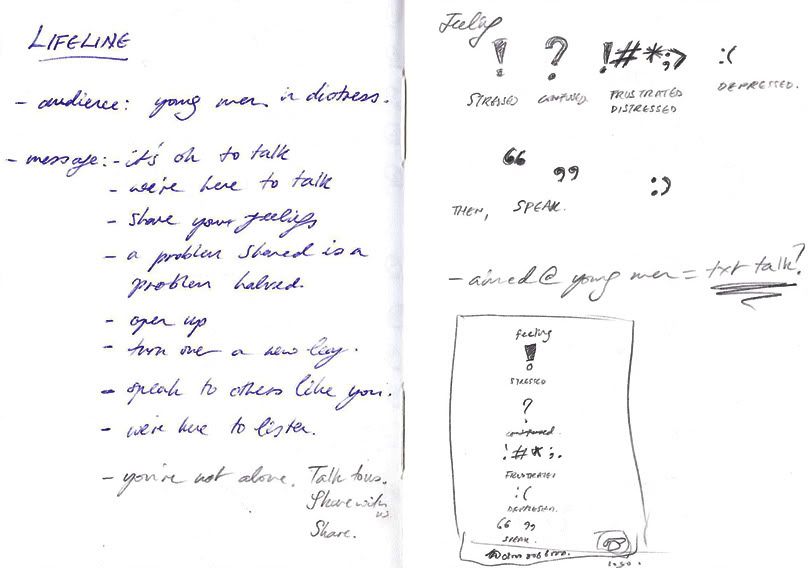 LIFELINE
- audience: young men in distress.
- message: - it's ok to talk
- we're here to talk
- share your feelings
- a problem shared is a
problem halved.
- open up
- turn over a new leaf.
- speak to others like you.
- we're here to listen.
- you're not alone. Talk to us.
Share with
us
Share.
Feeling
! ? !#*;> :(
STRESSED CONFUSED FRUSTRATED DEPRESSED.
DISTRESSED
“ ” :)
THEN, SPEAK.
- aimed @ young men = txt talk?
feeling
!
STRESSED
?
confused.
!#*;.
FRUSTRATED
:(
DEPRESSED.
“ ”
SPEAK.
logo.